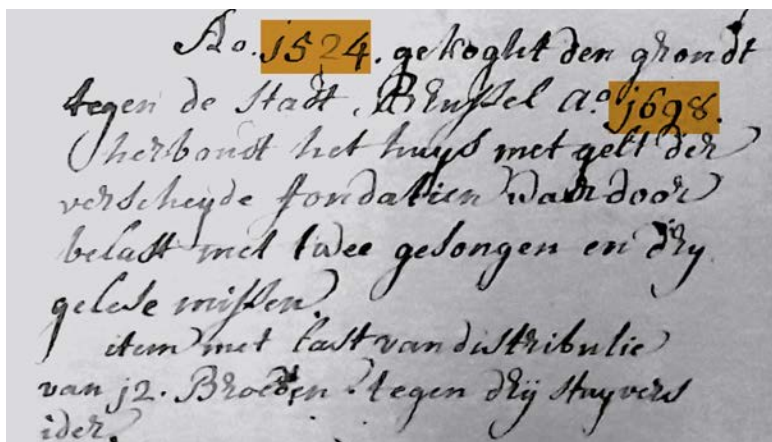 Ao. j524. gekoght den grondt
tegen de Stadt Brussel Ao. j698.
herboudt het huys met gelt der
verscheyde fondatien Waer door
belast met twee gesongen en drÿ
gelese missen.
item met last van distributie
van j2. Brooden tegen drij stuyvers
ider.